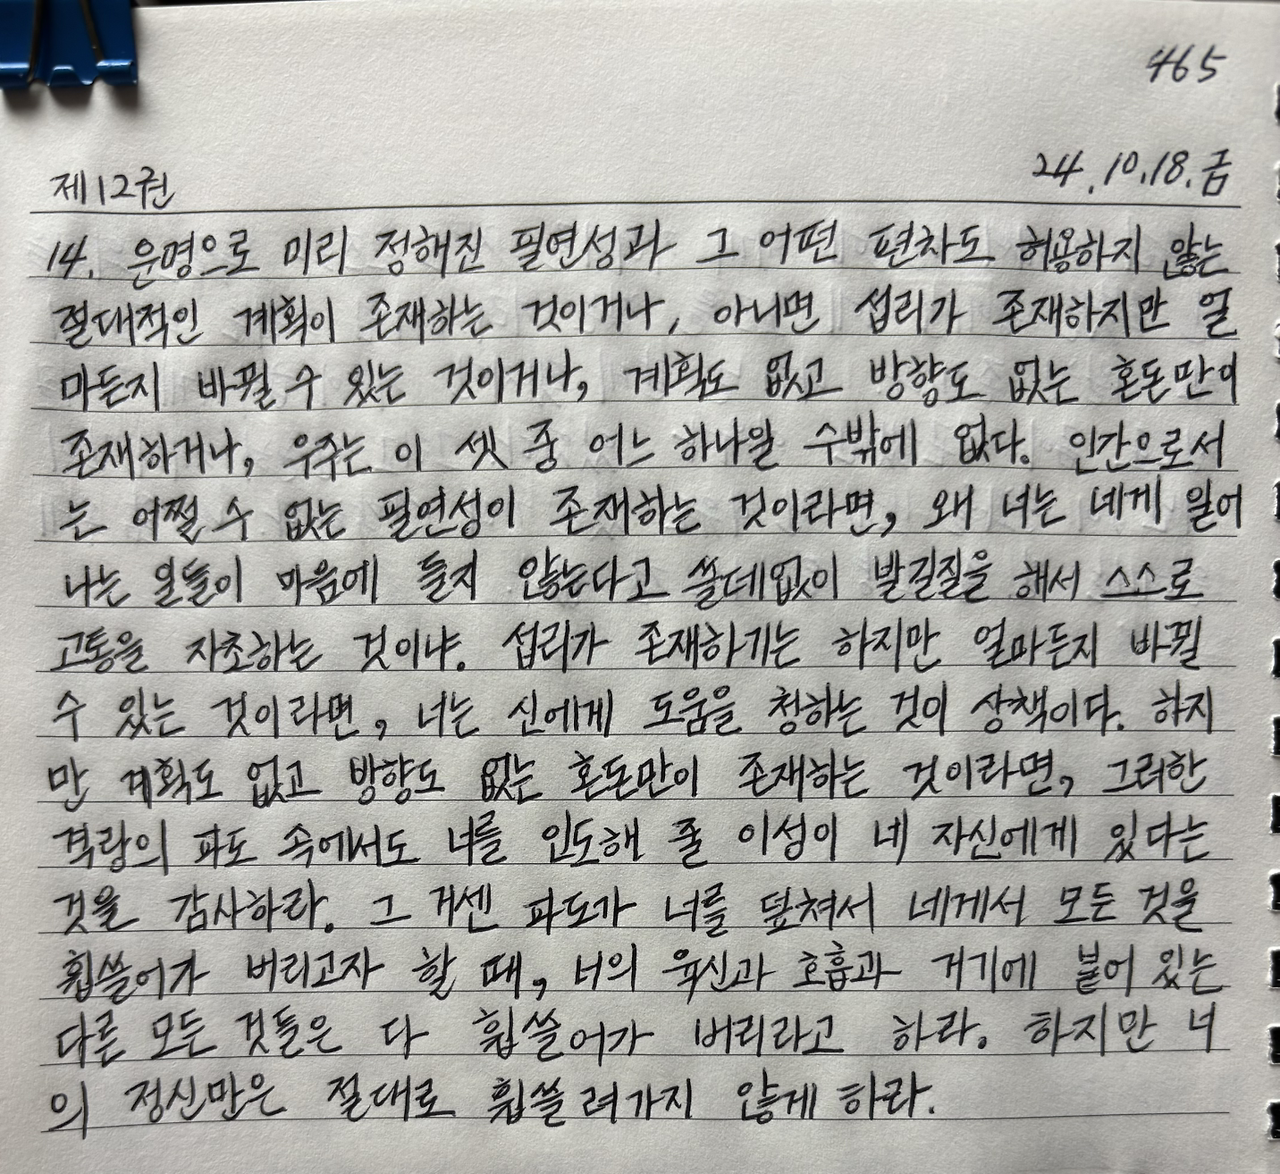 465
제12권
24.10.18.금
14. 운명으로 미리 정해진 필연성과 그 어떤 편차도 허용하지 않는
절대적인 계획이 존재하는 것이거나, 아니면 섭리가 존재하지만 얼
마든지 바뀔 수 있는 것이거나, 계획도 없고 방향도 없는 혼돈만이
존재하거나, 우주는 이 셋 중 어느 하나일 수밖에 없다. 인간으로서
는 어쩔 수 없는 필연성이 존재하는 것이라면, 왜 너는 네게 일어
나는 일들이 마음에 들지 않는다고 쓸데없이 발길질을 해서 스스로
고통을 자초하는 것이냐. 섭리가 존재하기는 하지만 얼마든지 바뀔
수 있는 것이라면, 너는 신에게 도움을 청하는 것이 상책이다. 하지
만 계획도 없고 방향도 없는 혼돈만이 존재하는 것이라면, 그러한
격랑의 파도 속에서도 너를 인도해 줄 이성이 네 자신에게 있다는
것을 감사하라. 그 거센 파도가 너를 덮쳐서 네게서 모든 것을
휩쓸어가 버리고자 할 때, 너의 육신과 호흡과 거기에 붙어 있는
다른 모든 것들은 다 휩쓸어가 버리라고 하라. 하지만 너
의 정신만은 절대로 휩쓸려가지 않게 하라.